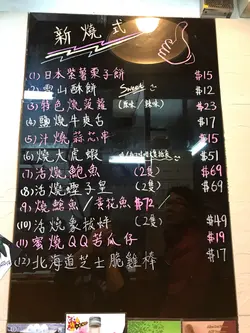 新燒式
(1) 日本紫薯栗子餅 $15
(2) 雪山酥餅 Sweet! $12
(3) 特色燒菠蘿 (原味、辣味) $23
(4) 鹽燒牛 $17
(5) 汁燒蒜芯串 $15
(6) 燒大虎蝦 $51
(7) 活燒鮑魚 (2隻) $69
(8) 活燒蟶子皇 (2隻) $69
(9) 燒鱈魚/黃花魚 $72/
(10) 活燒象拔蚌 (2隻) $49
(11) 蜜燒QQ若瓜仔 $19
(12) 北海道芝士脆雞棒 $17